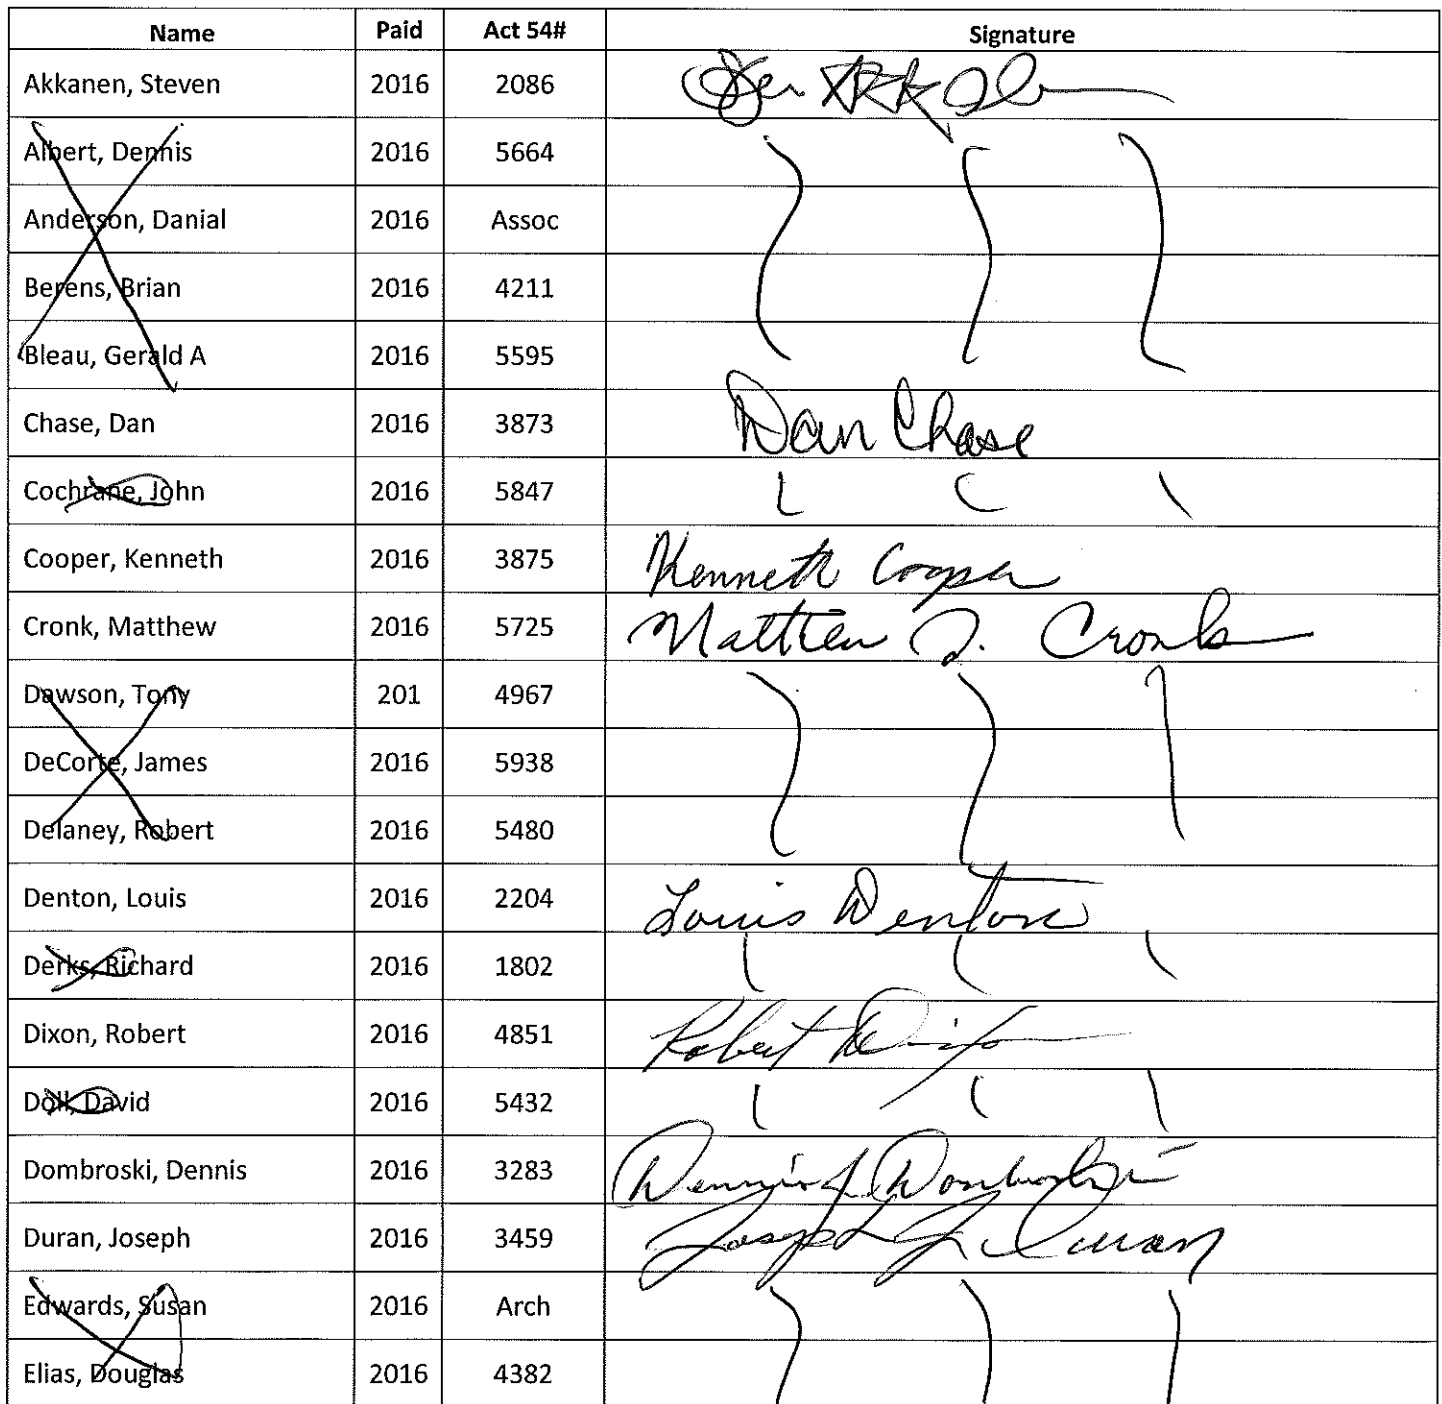 Name Paid Act 54# Signature
Akkanen, Steven 2016 2086
Albert, Dennis 2016 5664
Anderson, Danial 2016 Assoc
Berens, Brian 2016 4211
Bleau, Gerald A 2016 5595
Chase, Dan 2016 3873 Dan Chase
Cochrane, John 2016 5847
Cooper, Kenneth 2016 3875 Kenneth Cooper
Cronk, Matthew 2016 5725 Matthew J. Cronk
Dawson, Tony 201 4967
DeCorte, James 2016 5938
Delaney, Robert 2016 5480
Denton, Louis 2016 2204 Louis Denton
Derks, Richard 2016 1802
Dixon, Robert 2016 4851 Robert Dixon
Doll, David 2016 5432
Dombroski, Dennis 2016 3283 Dennis J. Dombroski
Duran, Joseph 2016 3459 Joseph Duran
Edwards, Susan 2016 Arch
Elias, Douglas 2016 4382